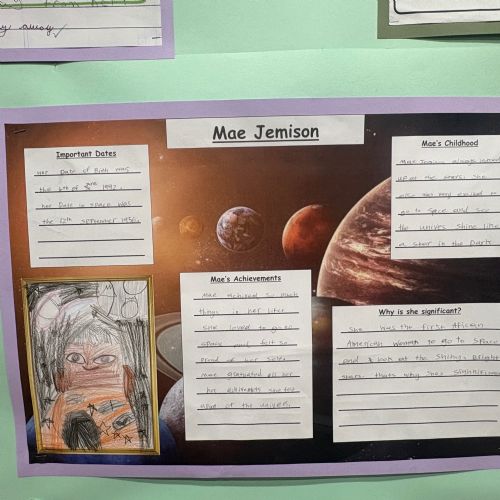 away
Mae Jemison
Important Dates
her Date of Birth was
the 6th of June 1992.
her Date in space was
the 12th september 1956.
Mae's Childhood
Mae always
up at the stars. She
also was very excited to
go to space and see
the univers shine like
a star in the Dark.
Mae's Achievements
Mae achieved so much
things in her life.
She loved to go to
space and felt so
proud of her self.
mae graduated all her
she felt
of the univers.
Why is she significant?
She was the first African
American woman to go to space
and look at the shiny Bright
stars. thats why shes significant